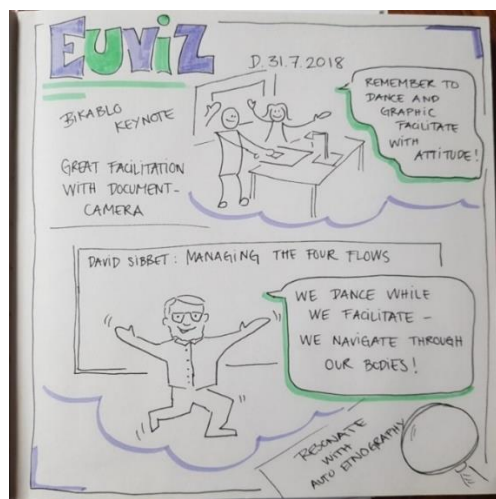 EUViZ
D. 31.7.2018
BIKABLO
KEYNOTE
GREAT FACILITATION
WITH DOCUMENT-
CAMERA
REMEMBER TO
DANCE AND
GRAPHIC
FACILITATE
WITH
ATTITUDE!
DAVID SIBBET: MANAGING THE FOUR FLOWS
WE DANCE WHILE
WE FACILITATE –
WE NAVIGATE THROUGH
OUR BODIES!
RESONATE
WITH
AUTO ETNOGRAPHY